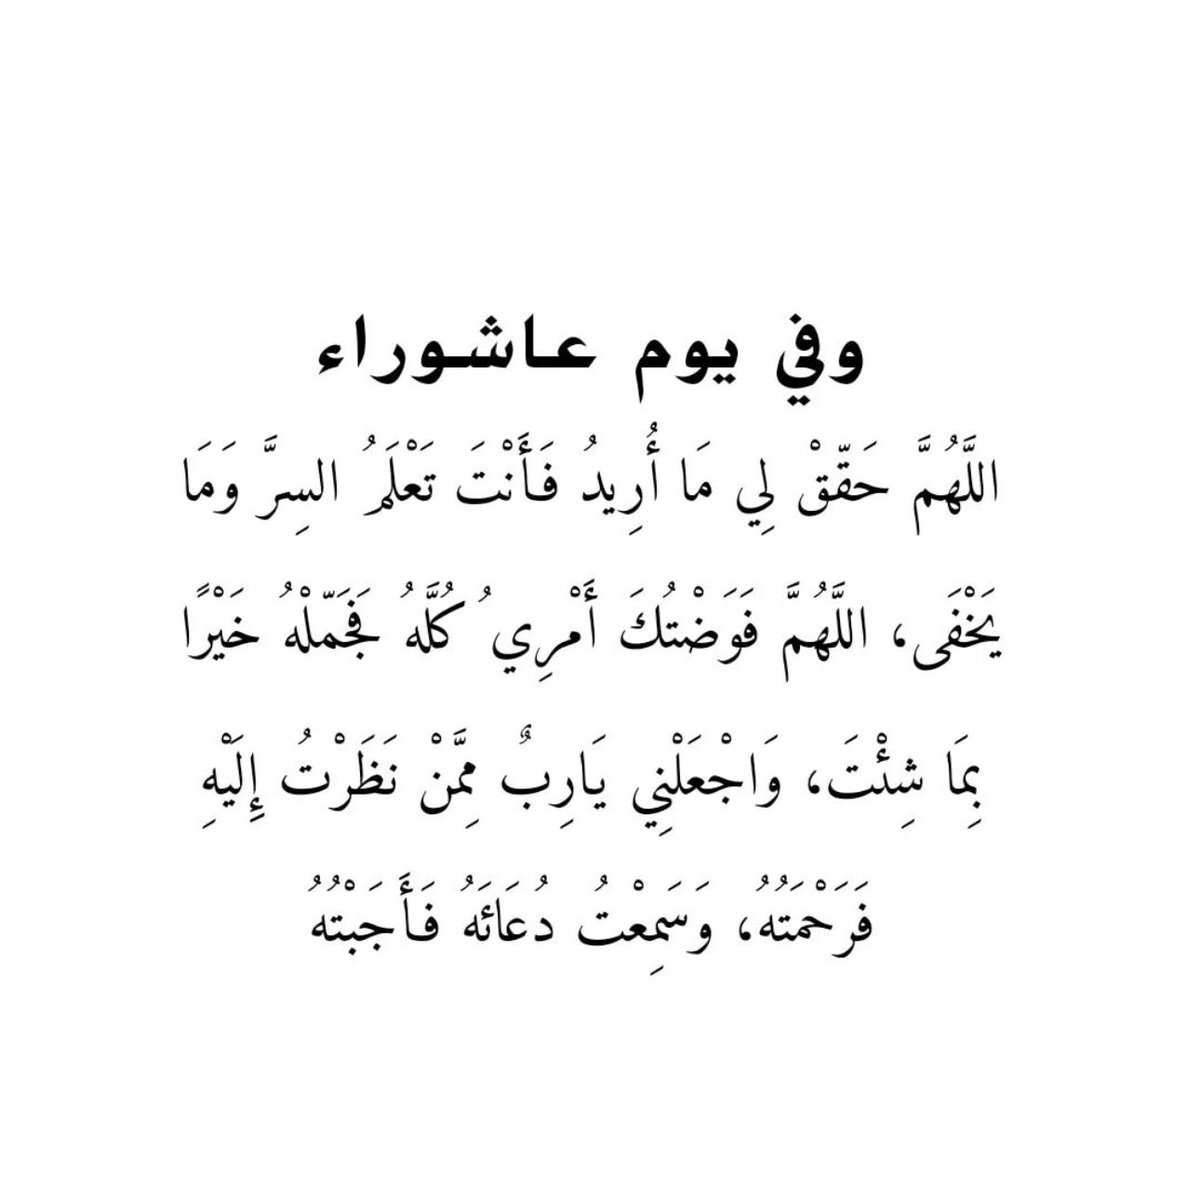 وفي يوم عاشوراء
اللَّهُمَّ حَقّقْ لِي مَا أُرِيدُ فَأَنْتَ تَعْلَمُ السِرَّ وَمَا
يَخْفَى، اللَّهُمَّ فَوَضْتُكَ أَمْرِي ُ كُلَّهُ فَجَمّلْهُ خَيْرًا
بِمَا شِئْتَ، وَاجْعَلْنِي يَارِبٌ مِمَّنْ نَظَرْتُ إِلَيْهِ
فَرَحْمَتُهُ، وَسَمِعْتُ دُعَائَهُ فَأَجَبْتُهُ